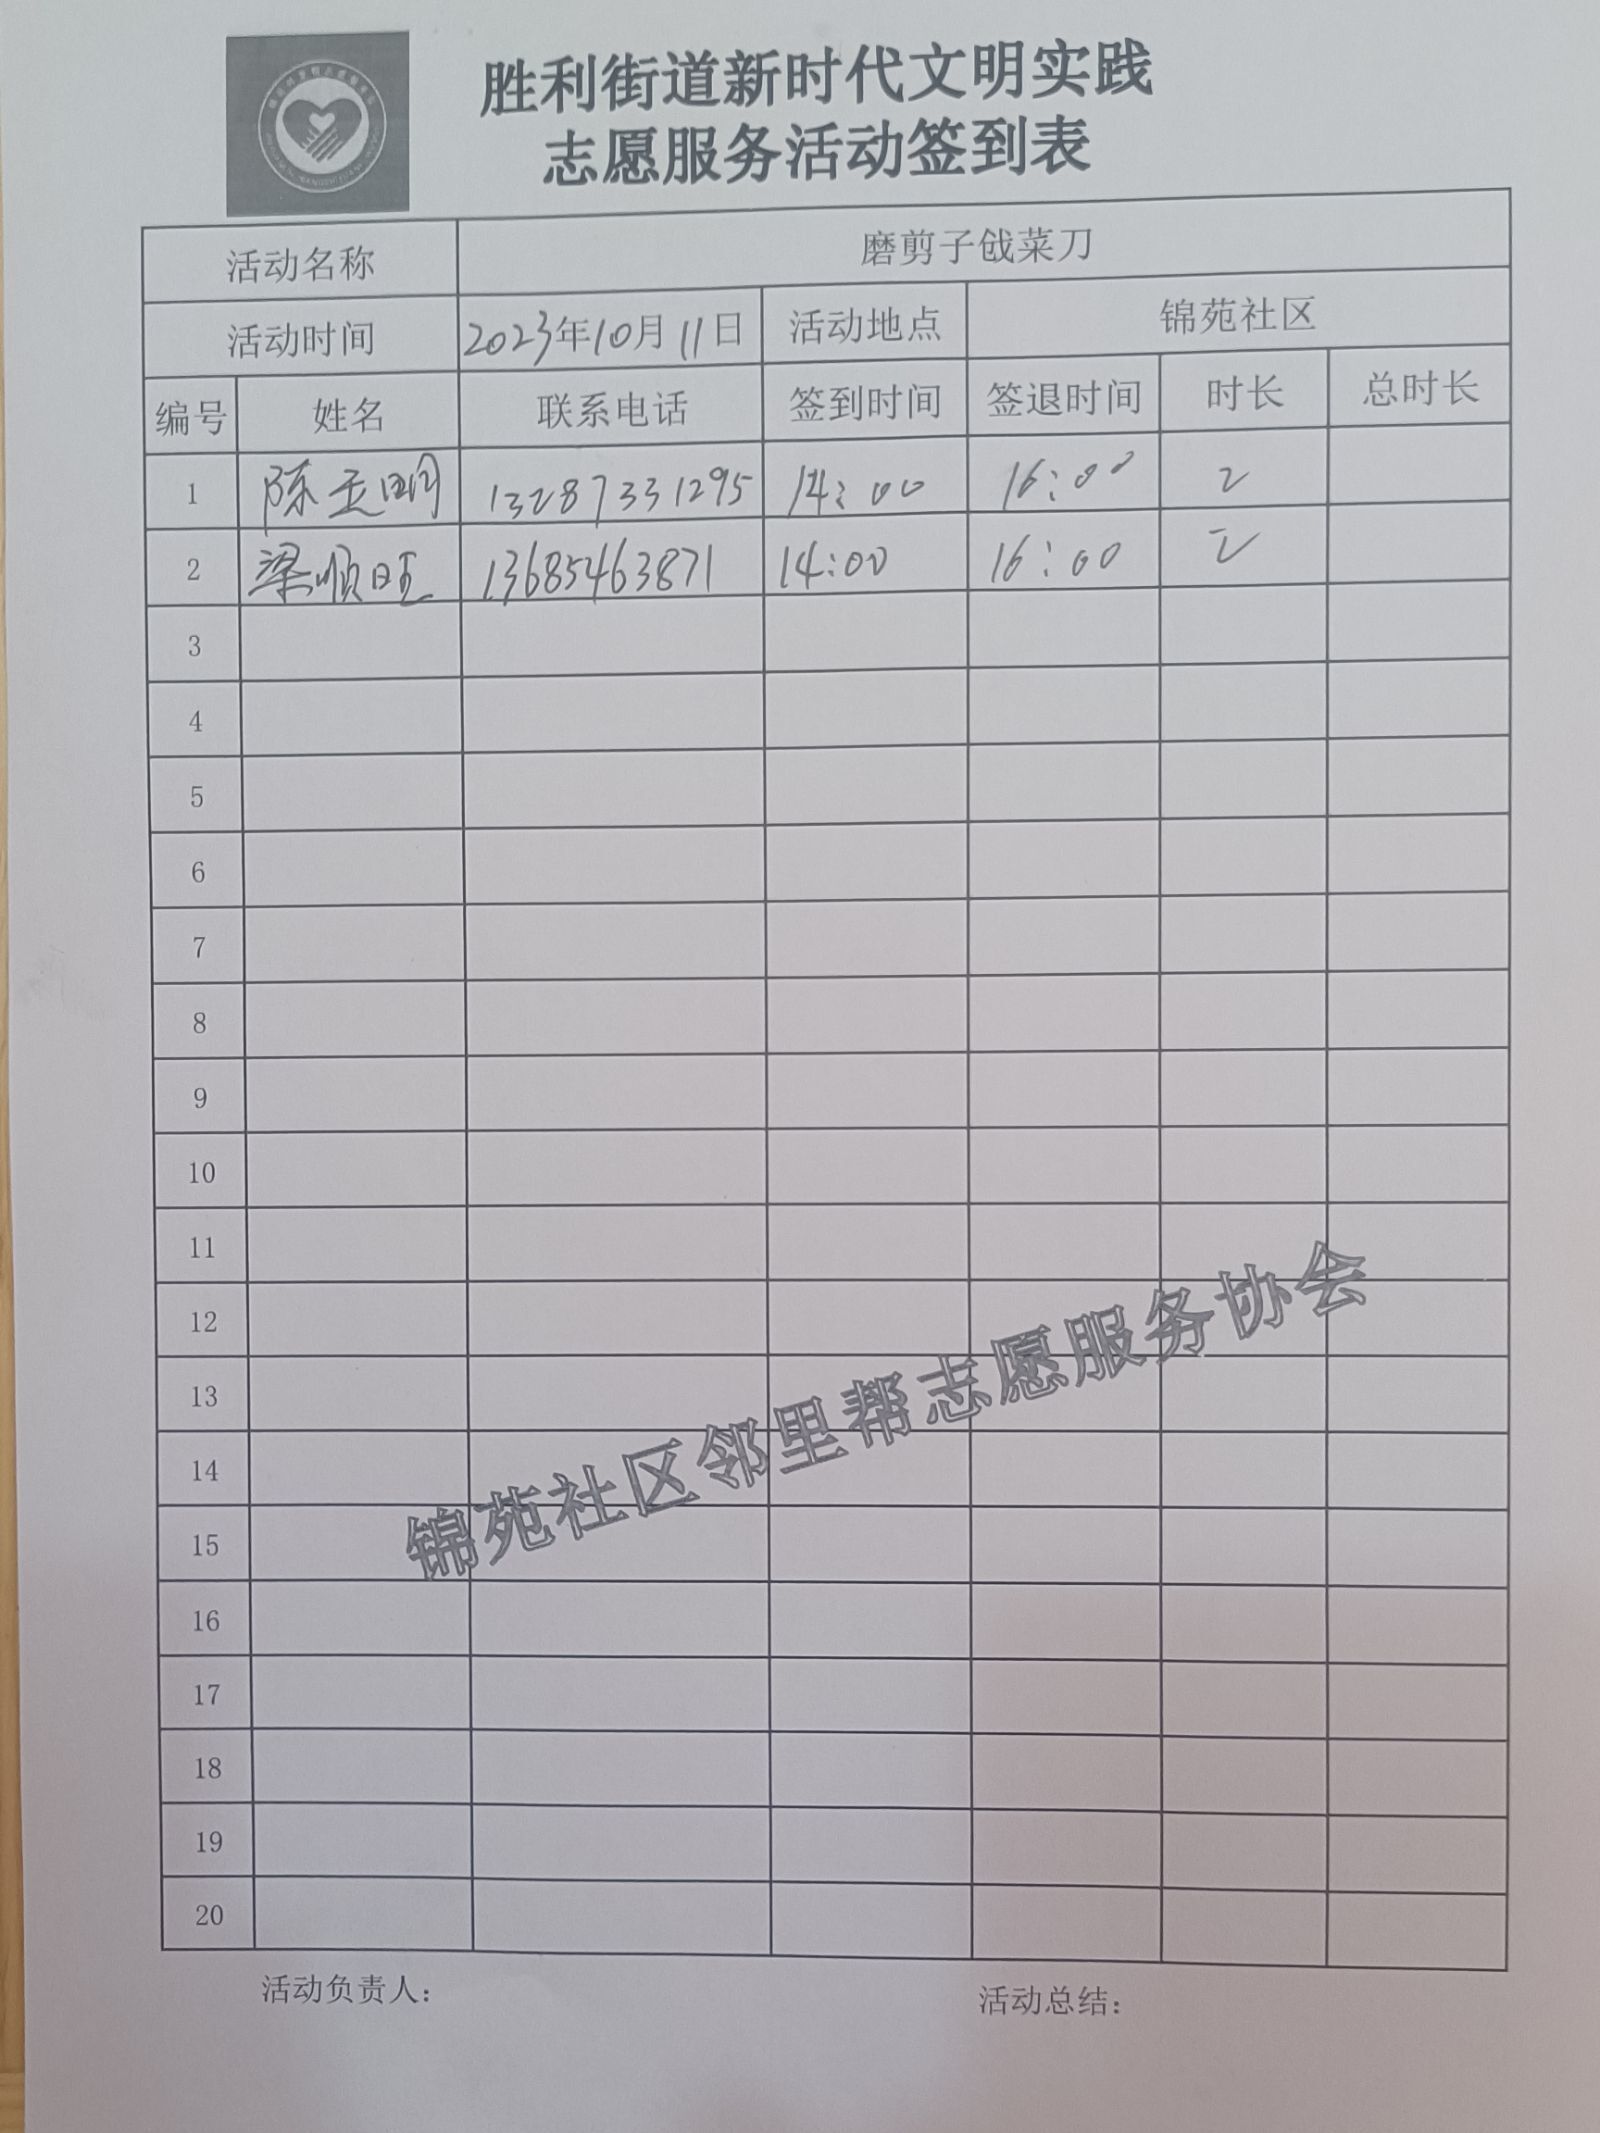 胜利街道新时代文明实践
志愿服务活动签到表
活动名称 磨剪子戗菜刀
活动时间 2023年10月11日 活动地点 锦苑社区
编号 姓名 联系电话 签到时间 签退时间 时长 总时长
1 陈玉明 13287331295 14:00 16:00 2
2 梁顺旺 13685463871 14:00 16:00 2
3
4
5
6
7
8
9
10
11
12
13
14
15
16
17
18
19
20
锦苑社区邻里帮志愿服务协会
活动负责人: 活动总结: